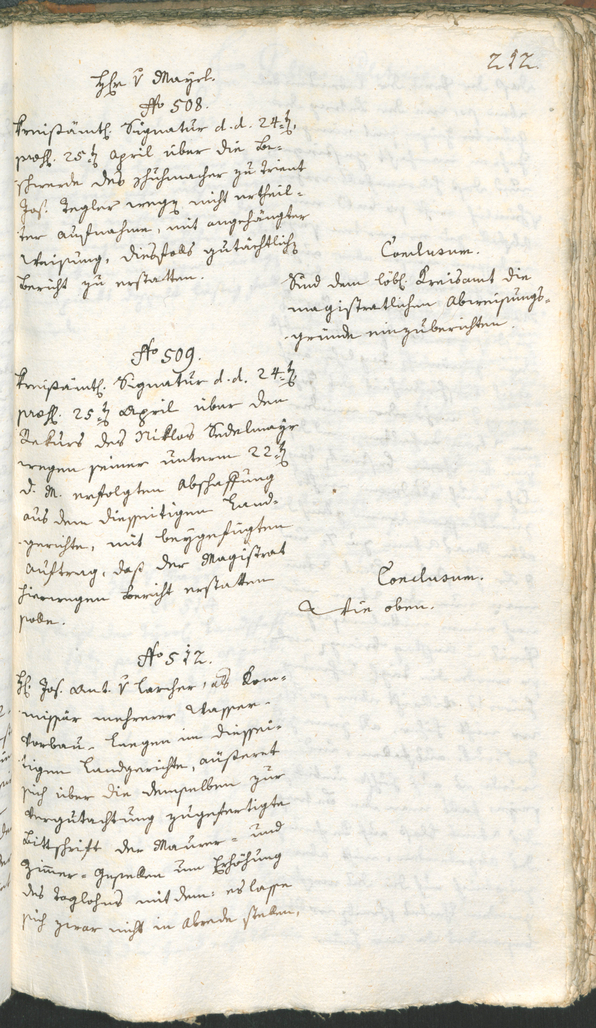 212.
Hr. v Mayrl.
No 508.
Kreisämtl. Signatur d. d. 24t,
präs. 25t April über die Be-
schwerde des Schuhmacher zu Trient
Jos. Tegler wegen nicht ertheil-
ter Aufnahme, mit angehängter
Weisung, diesfalls gutächtlich
Bericht zu erstatten.
Conclusum.
Sind dem löbl. Kreisamt die
magistratlichen Abweisungs-
gründe einzuberichten.
No 509.
Kreisämtl. Signatur d. d. 24t
präs. 25t April über den
Rekurs des Niklas Sedelmayr
wegen seiner unterm 22t
d. M. erfolgten Abschaffung
aus dem diesseitigen Land-
gerichte, mit beygefügtem
Auftrag, daß der Magistrat
hierwegen Bericht erstatten
solle.
Conclusum.
Wie oben.
No 512.
H. Jos. Ant. v Larcher, als Kom-
missär mehrerer Wasser-
Vorbau-Langen im diessei-
tigen Landgerichte, äußeret
sich über die demselben zur
Vergutachtung zugefertigte
Bittschrift der Maurer- und
Zimmer-Gesellen um Erhöhung
des Taglohns mit dem: es lasse
sich zwar nicht in Abrede stellen,